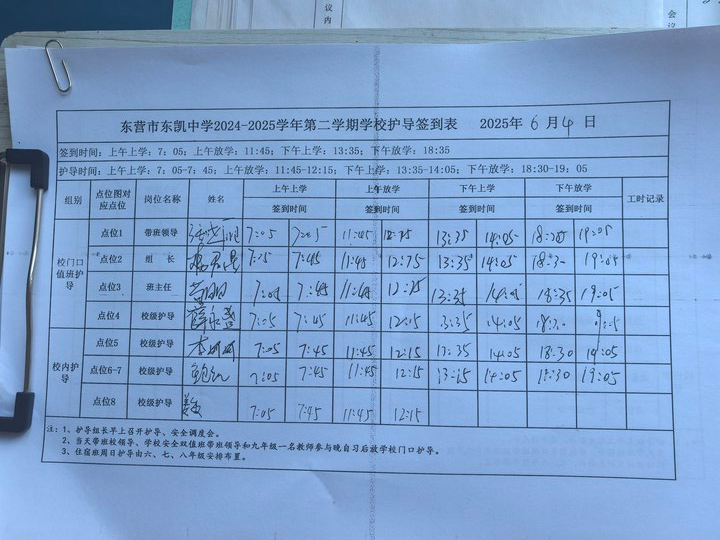 议
内
会
议
东营市东凯中学2024-2025学年第二学期学校护导签到表 2025年 6 月 4 日
签到时间:上午上学:7:05;上午放学:11:45;下午上学:13:35;下午放学:18:35
护导时间:上午上学:7:05-7:45;上午放学:11:45-12:15;下午上学:13:35-14:05;下午放学:18:30-19:05
组别 点位图对应点位 岗位名称 姓名 上午上学 上午放学 下午上学 下午放学 工时记录
签到时间 签到时间 签到时间 签到时间
校门口值班护导
点位1 带班领导 7:05 11:45 13:35 14:05 19:05
点位2 组 长 7:45 11:45 13:35 14:05 19:05
点位3 班主任 7:45 13:35 18:35 19:05
点位4 校级护导 7:45 11:45 14:05
校内护导
点位5 校级护导 7:05 7:45 11:45 12:15 14:05 18:30
点位6-7 校级护导 7:05 7:45 11:45 12:15 14:05 18:30 19:05
点位8 校级护导 7:05 7:45 11:45 12:15
注:1、护导组长早上召开护导、安全调度会。
2、当天带班校领导、学校安全双值班带班领导和九年级一名教师参与晚自习后放学校门口护导。
3、住宿班周日护导由六、七、八年级安排布置。